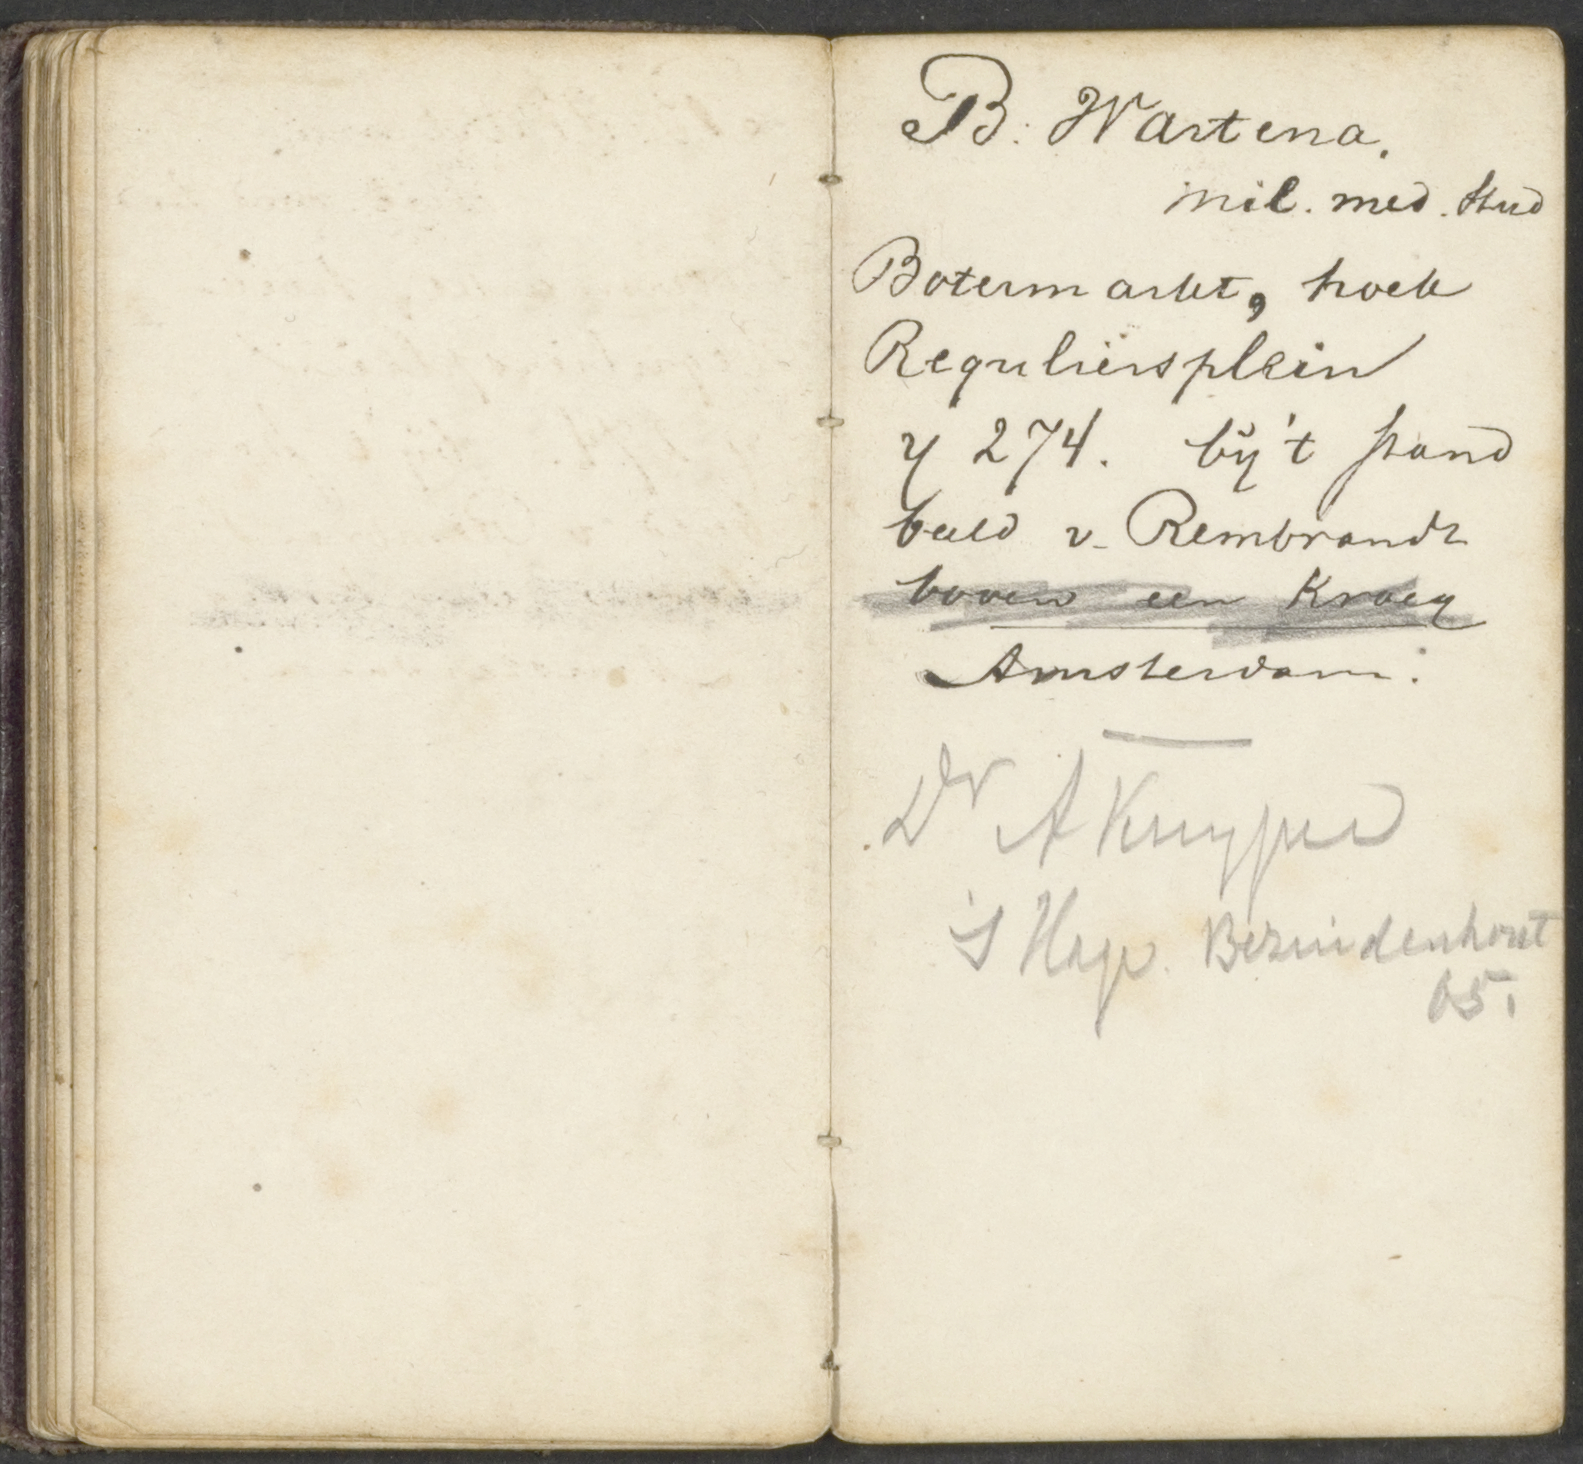 B. Wartena.
mil. med. stud
Botermarkt, hoek
Reguliersplein
Y 274. bij 't stand
beeld v. Rembrandt
boven een Kroeg
Amsterdam.
Dr A Kuyper
's Hage. Bezuidenhout
65.